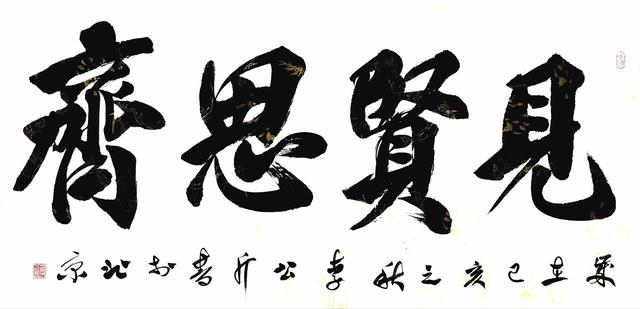 見賢思齊
歲在己亥之秋李公升書於北京